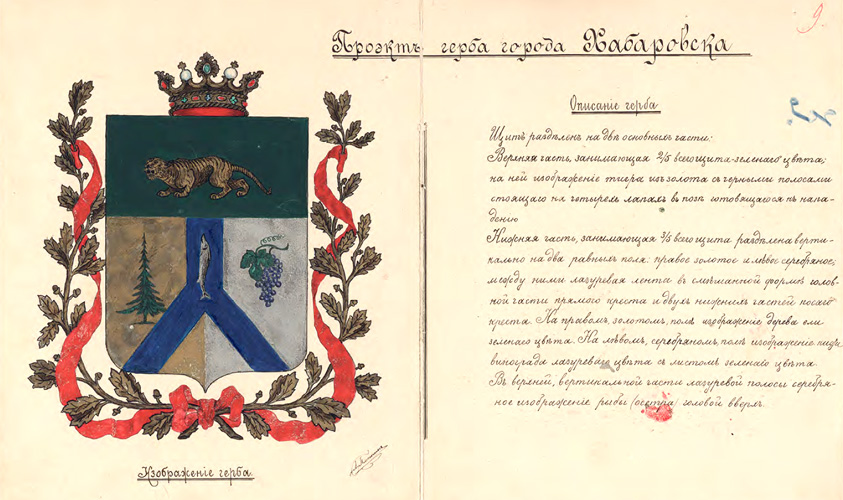 Проэктъ герба города Хабаровска
Описаніе герба
Щитъ раздѣленъ на двѣ основныхъ части:
Верхняя часть, занимающая 2/5 всего щита-зеленаго цвѣта;
на ней изображеніе тигра изъ золота съ черными полосами
стоящаго на четырехъ лапахъ въ позѣ готовящагося къ напа-
денію
Нижняя часть, занимающая 3/5 всего щита раздѣлена верти-
кально на два равныхъ поля: правое золотое и лѣвое серебряное;
между ними лазуревая лента въ смѣшанной формѣ голов-
ной части прямого креста и двухъ нижнихъ частей косаго
креста. На правомъ, золотомъ, полѣ изображеніе дерева ели
зеленаго цвѣта. На лѣвомъ, серебряномъ, полѣ изображеніе кисти
винограда лазуреваго цвѣта съ листомъ зеленаго цвѣта.
Въ верхней, вертикальной части лазуревой полосы серебря-
ное изображеніе рыбы (осетра) головой вверхъ.
Изображеніе герба
9